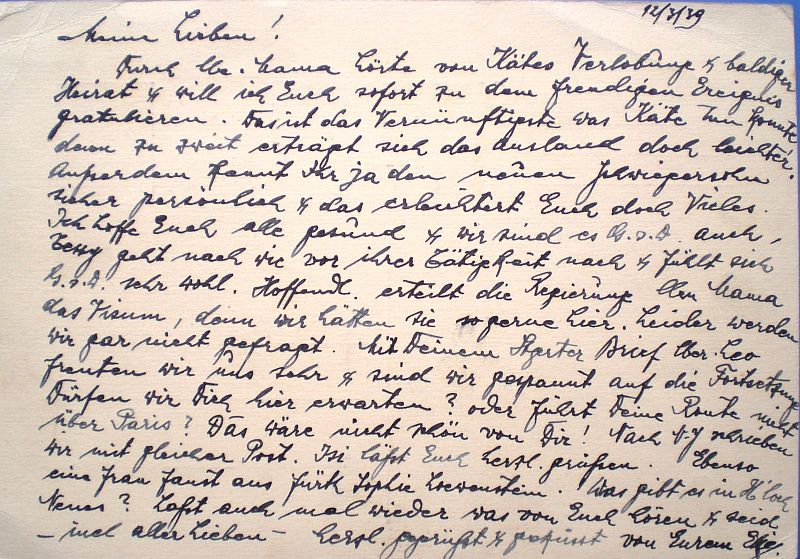 12/3/39
Meine Lieben!
Durch lbe. Mama hörte von Kätes Verlobung & baldiger
Heirat & will ich Euch sofort zu dem freudigen Ereignis
gratulieren. Das ist das Vernünftigste was Käte tun konnte
denn zu zweit erträgt sich das Ausland doch leichter.
Außerdem kennt Ihr ja den neuen Schwiegersohn
sicher persönlich & das erleichtert Euch doch Vieles.
Ich hoffe Euch alle gesund & wir sind es G.s.D. auch,
geht nach wie vor ihrer Tätigkeit nach & fühlt sich
G.s.D. sehr wohl. Hoffendl. erteilt die Regierung lbn Mama
das Visum, denn wir hätten sie so gerne hier. Leider werden
wir gar nicht gefragt. Mit Deinem Brief lber. Leo
freuten wir uns sehr & sind wir gespannt auf die Fortsetzung
Dürfen wir Dich hier erwarten? oder führt Deine Route nicht
über Paris? Das wäre nicht schön von Dir! Nach N.Y schrieben
wir mit gleicher Post. läßt Euch herzl. grüßen. Ebenso
eine Frau Faust aus Fürth Sophie Loewenstein. Was gibt es in
Neues? Laßt auch mal wieder was von Euch hören & seid
– incl aller Lieben – herzl. gegrüßt & geküsst von Eurem